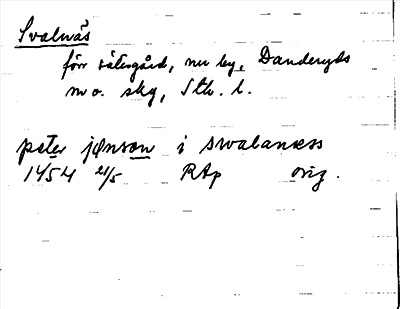 Svalnäs
förr sätesgård, nu by, Danderyds
sn o. skg, Sth. l.
peter jønson i swalanæss
1454 21/5 RAp orig.